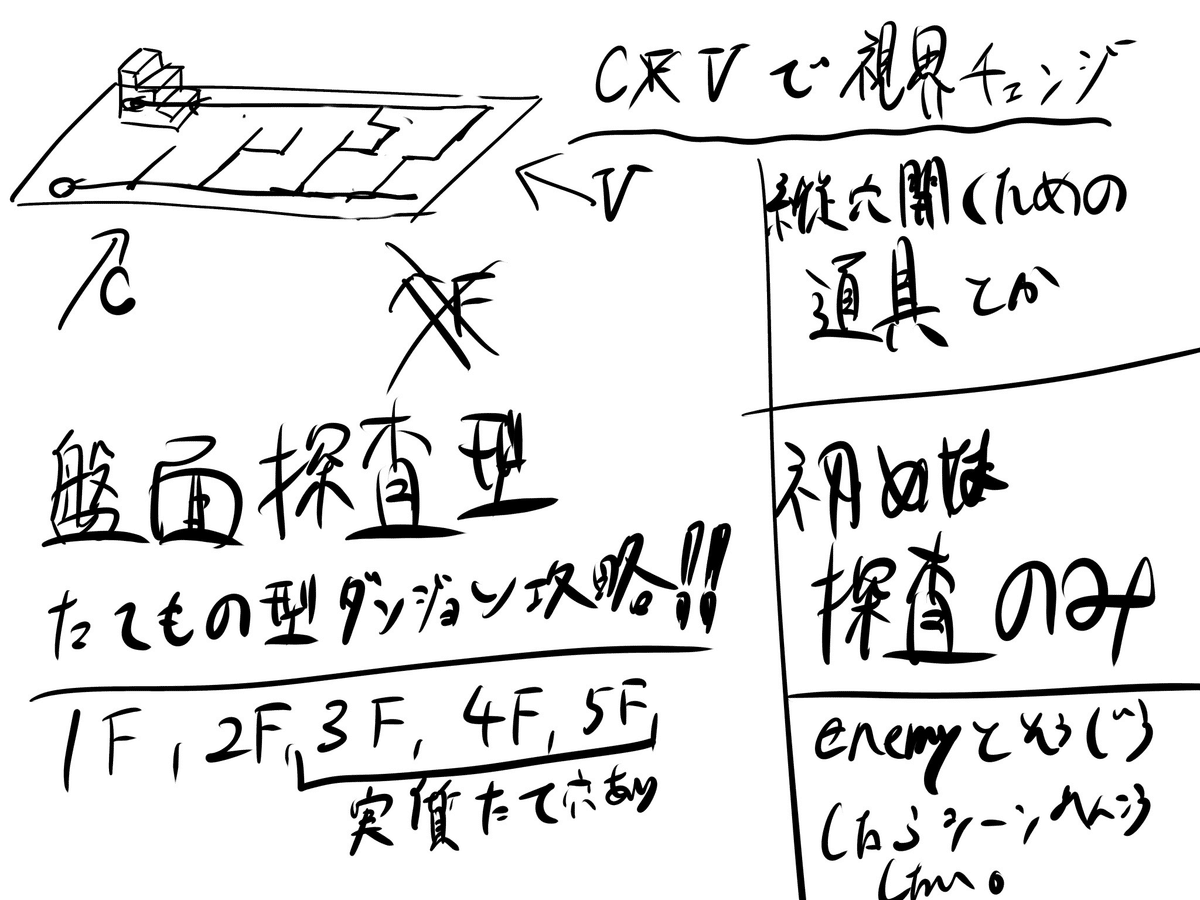 CFVで視界チェンジ
V
C
F
縦穴開くための
道具とか
盤面探査型
たてもの型ダンジョン攻略!!
初めは
探査のみ
1F, 2F, 3F, 4F, 5F
実質たて穴あり
enemyとそうじう
したらシーンへんこう
したい。